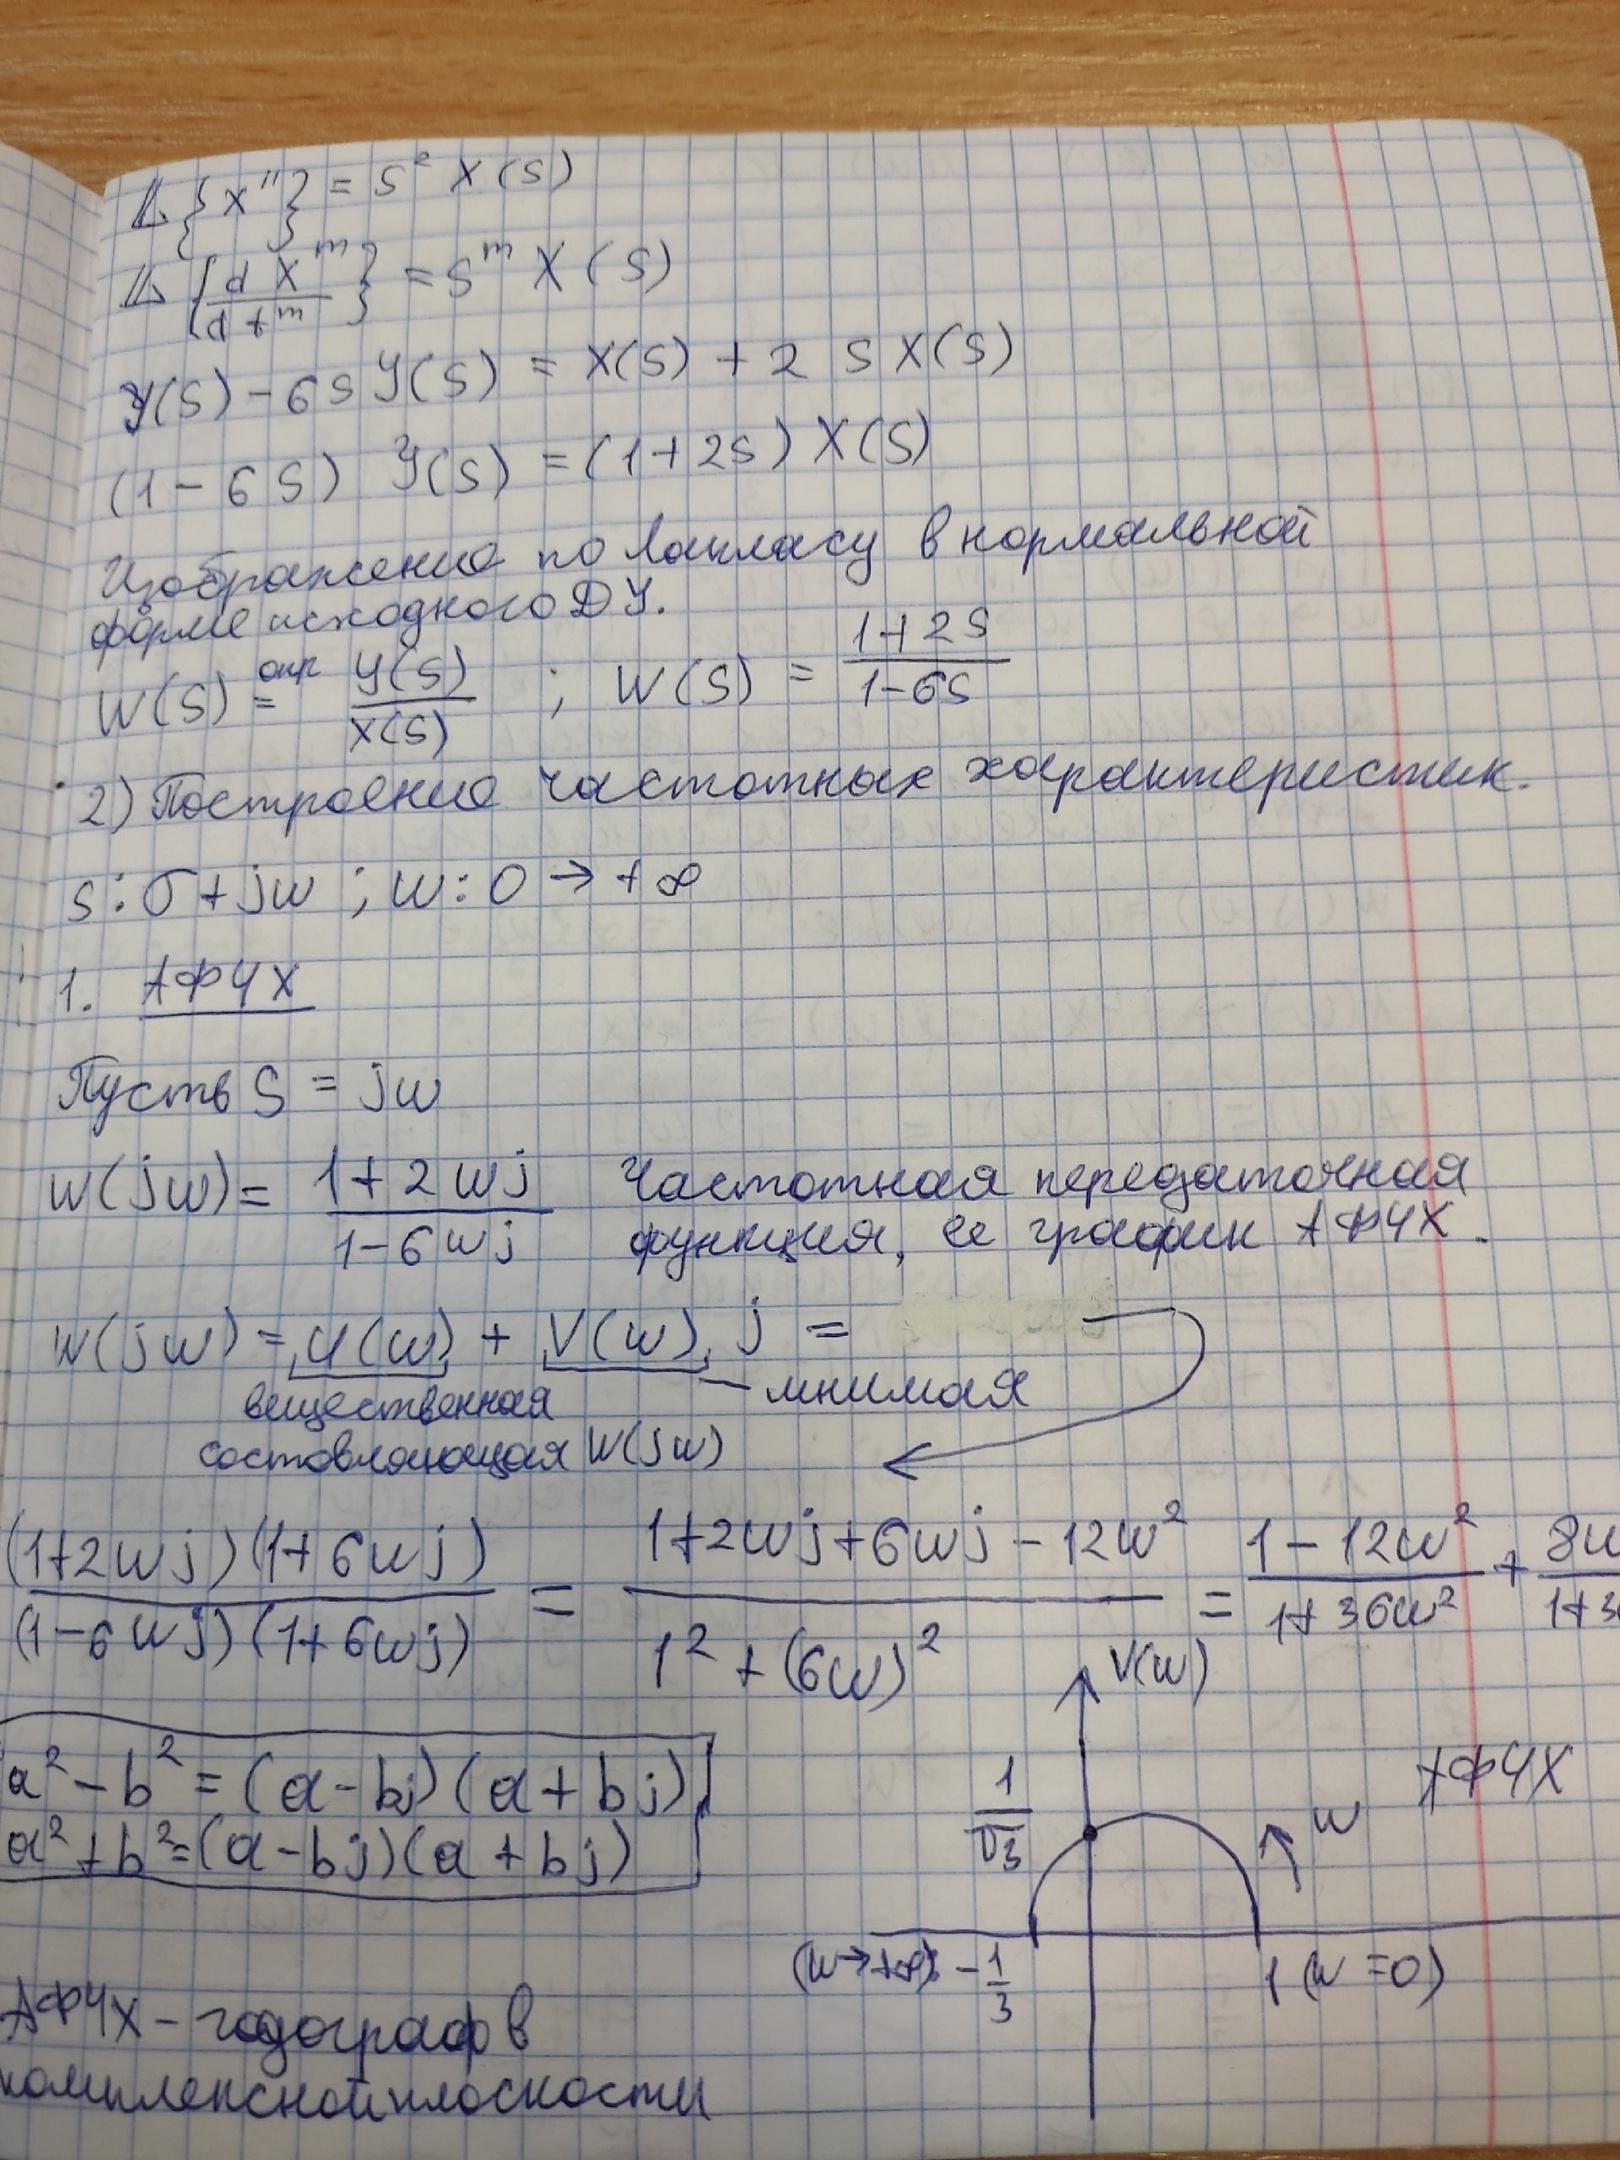 L{x''} = s² X(s)
L{dX^m/dt^m} = s^m X(s)
Y(s) - 6s Y(s) = X(s) + 2 s X(s)
(1 - 6s) Y(s) = (1+2s) X(s)
Изображение по Лапласу в нормальной
форме исходного ДУ.
W(s) опр = Y(s)/X(s) ; W(s) = (1+2s)/(1-6s)
2) Построение частотных характеристик.
s: σ + jw ; w: 0 → +∞
1. АФЧХ
Пусть S = jw
W(jw) = (1+2wj)/(1-6wj) Частотная передаточная
функция, ее график АФЧХ.
W(jw) = U(w) + V(w) j =
вещественная – мнимая
состовляющая W(jw)
(1+2wj)(1+6wj)/(1-6wj)(1+6wj) = (1+2wj+6wj-12w²)/(1²+(6w)²) = (1-12w²)/(1+36w²) + 8w/1+3
a² - b² = (a-bj)(a+bj)
a² + b² = (a-bj)(a+bj)
V(w)
АФЧХ
1/√3
w
(w→+∞) -1/3
1 (w=0)
АФЧХ – годограф в
комплексной плоскости